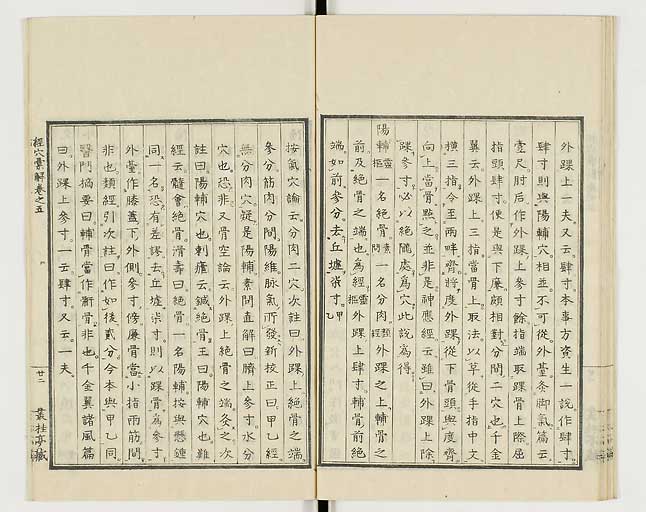 外踝上一夫又云肆寸本事方資生一說作肆寸
肆寸則與陽輔穴相並不可從外臺条脚氣篇云
壹尺肘后作外踝上參寸餘指端取踝骨上際屈
指頭肆寸便是與下廉頗相對分間二穴也千金
翼云外踝上三指當骨上取法以草從手指中文
橫三指令至兩畔齊將度外踝從下骨頭與度齊
向上當骨點之並非是神應經云雖曰外踝上除
踝參寸必以絕隴處為穴此說為得
陽輔靈樞一名絕骨素問一名分肉類經外踝之上輔骨之
前及絕骨之端也為經靈樞外踝上肆寸輔骨前絕
端如前參分去丘墟柒寸甲乙
按氣穴論云分肉二穴次註曰外踝上絕骨之端
參分筋肉分間陽維脉氣所發新校正曰甲乙經
無分肉穴疑是陽輔素問直解曰臍上參寸水分
穴也恐非又骨空論云外踝上絕骨之端灸之次
註曰陽輔穴也刺瘧云鍼絕骨王曰陽輔穴也難
經云髓會絕骨滑壽曰絕骨一名陽輔按與懸鍾
同一名恐有差謬去丘墟柒寸則以踝骨為參寸
外臺作膝蓋下外側參寸傍廉骨當小指兩筋間
非也類經引次註曰作如後貳分今本與甲乙同
醫門摘要曰輔骨當作䯒骨非也千金翼諸風篇
曰外踝上參寸一云肆寸又云一夫
經穴彙解卷之五
廿二
叢桂亭藏